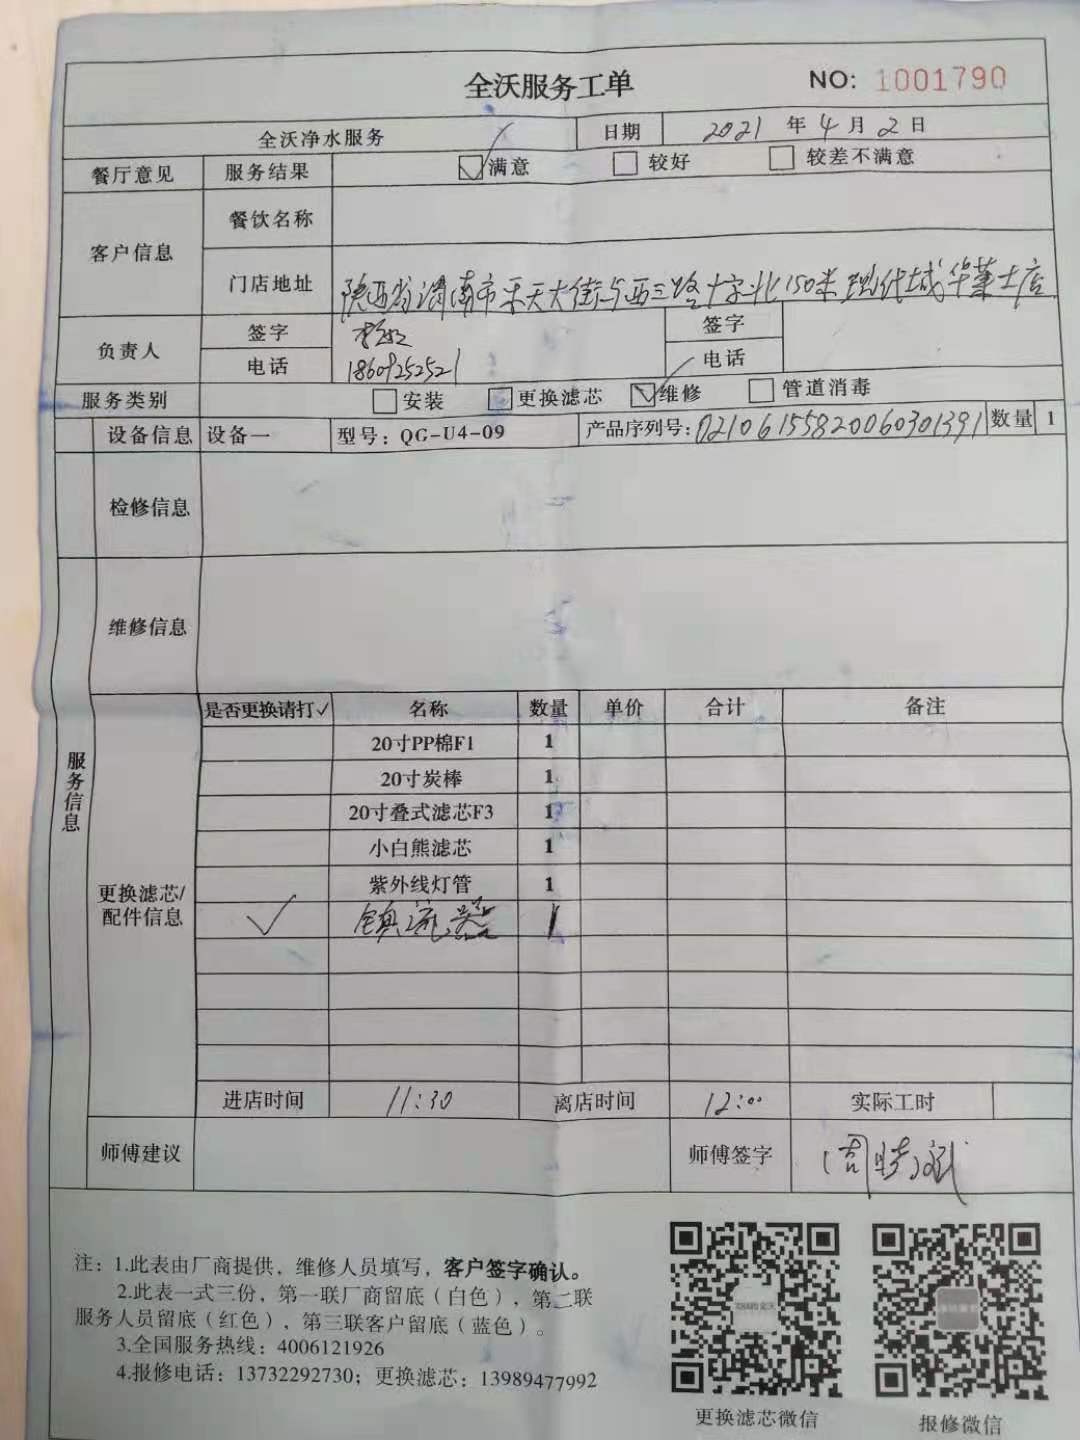 全沃服务工单 NO: 1001790
全沃净水服务 日期 2021 年 4 月 2 日
餐厅意见 服务结果 满意 较好 较差不满意
客户信息 餐饮名称
门店地址 陕西省渭南市乐天大街与西三路十字北150米现代城华莱士店
负责人 签字 签字
电话 18609252521 电话
服务类别 安装 更换滤芯 维修 管道消毒
设备信息 设备一 型号: QG-U4-09 产品序列号: 02106155820060301391 数量 1
检修信息
维修信息
服务信息
更换滤芯/
配件信息
是否更换请打✓ 名称 数量 单价 合计 备注
20寸PP棉F1 1
20寸炭棒 1
20寸叠式滤芯F3 1
小白熊滤芯 1
紫外线灯管 1
✓ 镇流器 1
进店时间 11:30 离店时间 12:00 实际工时
师傅建议 师傅签字
注: 1.此表由厂商提供, 维修人员填写, 客户签字确认。
2.此表一式三份, 第一联厂商留底(白色), 第二联
服务人员留底(红色), 第三联客户留底(蓝色)。
3.全国服务热线: 4006121926
4.报修电话: 13732292730; 更换滤芯: 13989477992
更换滤芯微信 报修微信